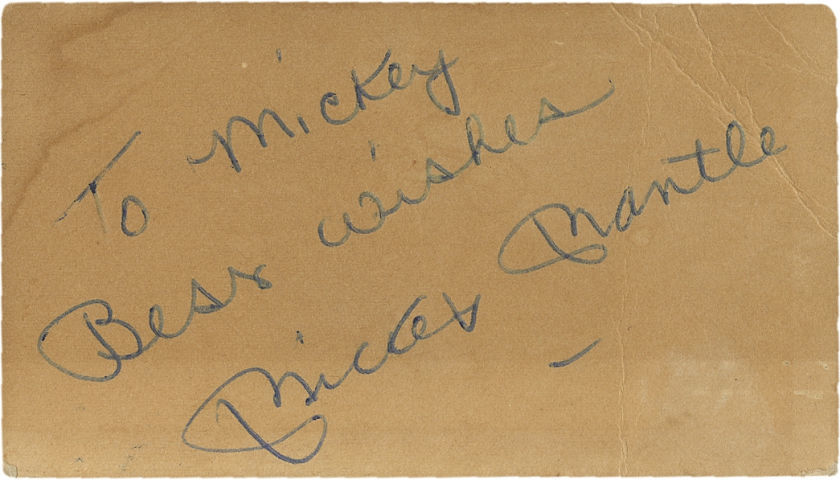 To Mickey
Best wishes
Mickey Mantle